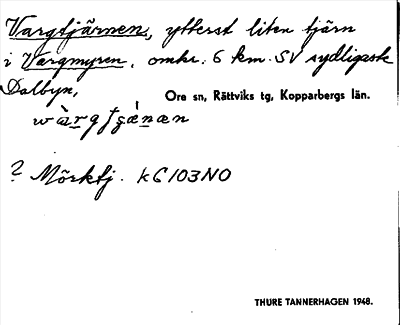 Vargtjärnen, ytterst liten tjärn
i Vargmyren, omkr. 6 km. SV sydligaste
Dalbyn,
Ore sn, Rättviks tg, Kopparbergs län.
? Mörktj. kC103NO
THURE TANNERHAGEN 1948.